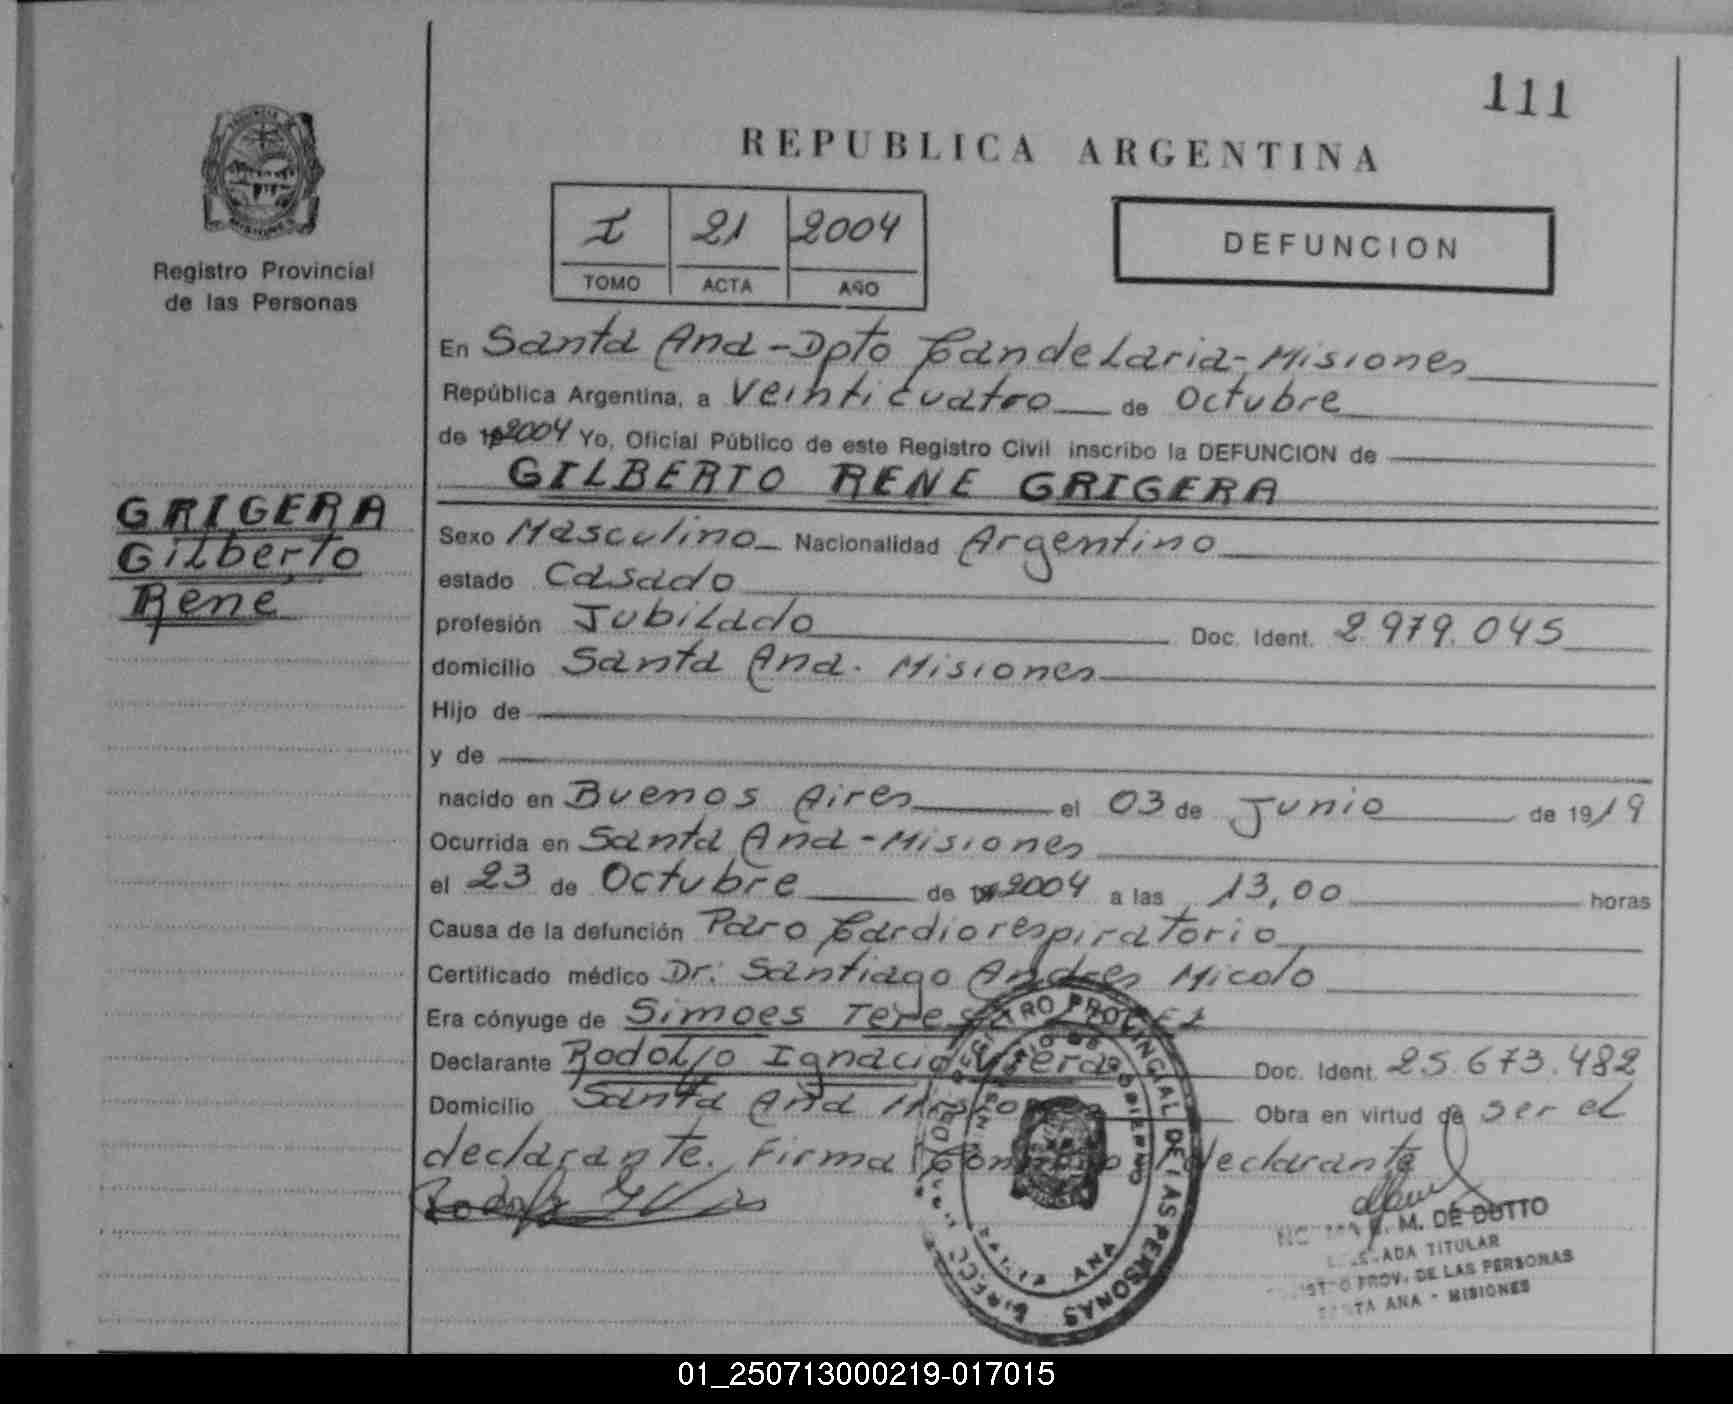 111
REPUBLICA ARGENTINA
Registro Provincial
de las Personas
I 21 2004
TOMO ACTA AÑO
DEFUNCION
En Santa Ana - Dpto Candelaria - Misiones
República Argentina, a Veinticuatro de Octubre
de 19 2004 Yo, Oficial Público de este Registro Civil inscribo la DEFUNCION de
GILBERTO RENE GRIGERA
GRIGERA
Gilberto
René
Sexo Masculino Nacionalidad Argentino
estado Casado
profesión Jubilado Doc. Ident. 2.979.045
domicilio Santa Ana - Misiones
Hijo de
y de
nacido en Buenos Aires el 03 de Junio de 1919
Ocurrida en Santa Ana - Misiones
el 23 de Octubre de 19 2004 a las 13,00 horas
Causa de la defunción Paro Cardiorespiratorio
Certificado médico Dr. Santiago Andres Micolo
Era cónyuge de Simoes
Declarante Rodolfo Ignacio Doc. Ident. 25.673.482
Domicilio Santa Ana Obra en virtud de ser el
declarante. Firma declarante
REGISTRO PROVINCIAL DE LAS PERSONAS
SANTA ANA
M. DE DUTTO
TITULAR
PROV. DE LAS PERSONAS
ANA - MISIONES
01_250713000219-017015